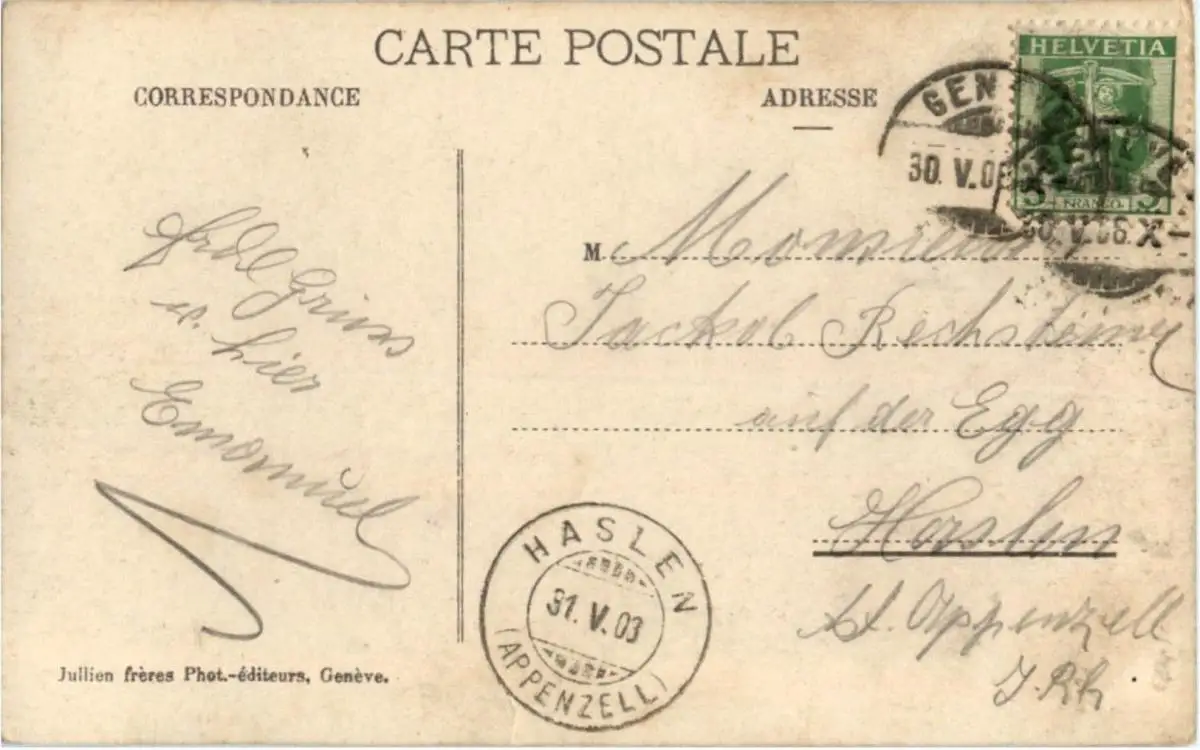 CARTE POSTALE
CORRESPONDANCE
ADRESSE
HELVETIA
5 FRANCO. 5
GENÈVE
30. V. 0
X
Gruss
u. hier
Emanuel
M. Monsieur
Jackob Rechsteiner
auf der Egg
Haslen
Kt. Appenzell
I. Rh
HASLEN
31. V. 03
(APPENZELL)
Jullien frères Phot.-éditeurs, Genève.